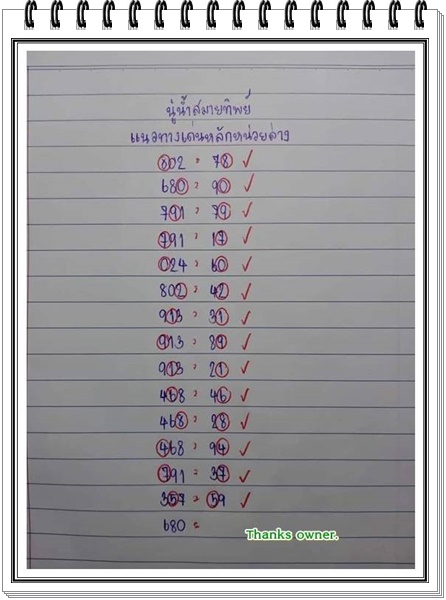 นู๋น้ำสมายทิพย์
แนวทางเด่นหลักหน่วยล่าง
802 = 78 ✓
680 = 90 ✓
791 = 79 ✓
791 = 17 ✓
024 = 60 ✓
802 = 42 ✓
913 = 31 ✓
913 = 89 ✓
913 = 21 ✓
468 = 46 ✓
468 = 28 ✓
468 = 94 ✓
791 = 37 ✓
357 = 59 ✓
680 =
Thanks owner.